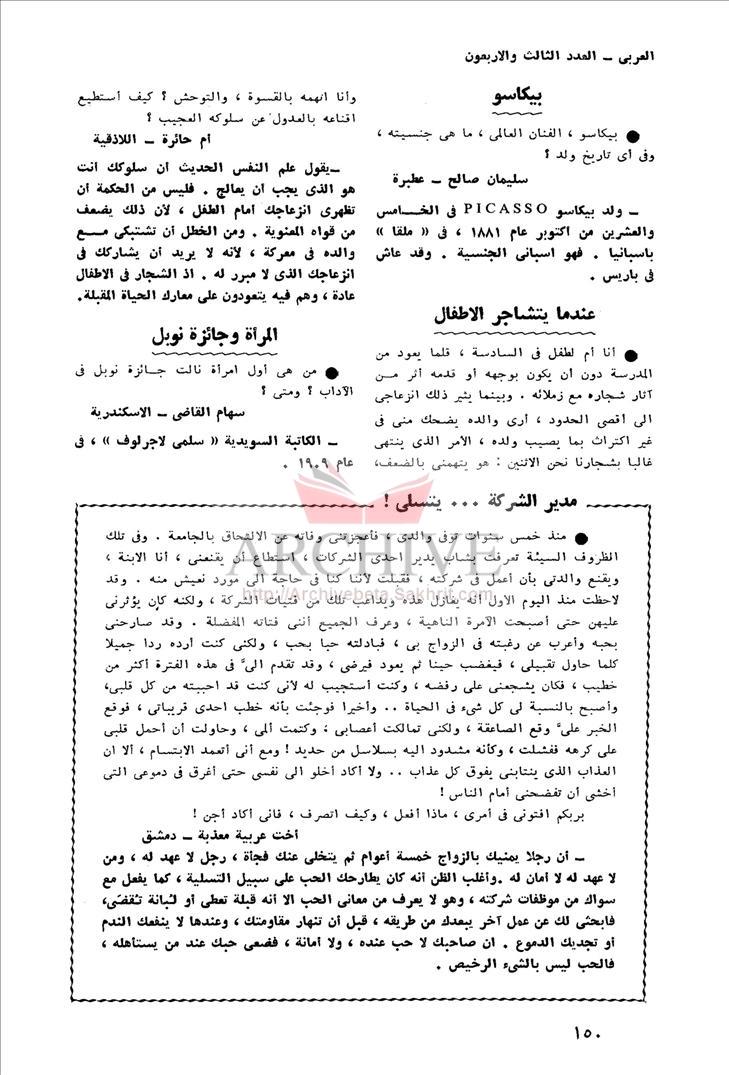 العربى – العدد الثالث والاربعون
بيكاسو
● بيكاسو ، الفنان العالمى ، ما هى جنسيته ،
وفى أى تاريخ ولد ؟
سليمان صالح – عطبرة
– ولد بيكاسو PICASSO فى الخـــامس
والعشرين من اكتوبر عام ١٨٨١ ، فى « ملقا »
باسبانيا . فهو اسبانى الجنسية . وقد عاش
فى باريس .
عندما يتشاجر الاطفال
● أنا أم لطفل فى السادسة ، قلما يعود من
المدرسة دون أن يكون بوجهه أو قدمه أثر مــن
آثار شجاره مع زملائه . وبينما يثير ذلك انزعاجى
الى أقصى الحدود ، أرى والده يضحك منى فى
غير اكتراث بما يصيب ولده ، الامر الذى ينتهى
غالبا بشجارنا نحن الاثنين : هو يتهمنى بالضعف،
وأنا اتهمه بالقسوة ، والتوحش ؟ كيف أستطيع
اقناعه بالعدول عن سلوكه العجيب ؟
أم حائرة – اللاذقية
–يقول علم النفس الحديث أن سلوكك أنت
هو الذى يجب أن يعالج . فليس من الحكمة أن
تظهرى انزعاجك أمام الطفل ، لأن ذلك يضعف
من قواه المعنوية . ومن الخطل أن تشتبكى مــع
والده فى معركة ، لأنه لا يريد أن يشاركك فى
انزعاجك الذى لا مبرر له . اذ الشجار فى الاطفال
عادة ، وهم فيه يتعودون على معارك الحياة المقبلة.
المرأة وجائزة نوبل
● من هى أول امرأة نالت جـائزة نوبل فى
الآداب ؟ ومتى ؟
سهام القاضى – الاسكندرية
– الكاتبة السويدية « سلمى لاجرلوف » ، فى
عام ١٩٠٩ .
مدير الشركة ... يتسلى !
● منذ خمس سنوات توفى والدى ، فأعجزتنى وفاته عن الالتحاق بالجامعة . وفى تلك
الظروف السيئة تعرفت بشاب يدير احدى الشركات ، استطاع أن يقنعنى ، أنا الابنة ،
ويقنع والدتى بأن أعمل فى شركته ، فقبلت لأننا كنا فى حاجة الى مورد نعيش منه . وقد
لاحظت منذ اليوم الاول أنه يغازل هذه ويداعب تلك من فتيات الشركة ، ولكنه كان يؤثرنى
عليهن حتى أصبحت الآمرة الناهية ، وعرف الجميع أننى فتاته المفضلة . وقد صارحنى
بحبه وأعرب عن رغبته فى الزواج بى ، فبادلته حبا بحب ، ولكنى كنت أرده ردا جميلا
كلما حاول تقبيلى ، فيغضب حينا ثم يعود فيرضى ، وقد تقدم الىَّ فى هذه الفترة أكثر من
خطيب ، فكان يشجعنى على رفضه ، وكنت أستجيب له لأنى كنت قد احببته من كل قلبى،
وأصبح بالنسبة لى كل شىء فى الحياة .. وأخيرا فوجئت بأنه خطب احدى قريباتى ، فوقع
الخبر علىَّ وقع الصاعقة ، ولكنى تمالكت أعصابى ، وكتمت ألمى ، وحاولت أن أحمل قلبى
على كرهه ففشلت ، وكأنه مشدود اليه بسلاسل من حديد ! ومع أنى أتعمد الابتسام ، ألا ان
العذاب الذى ينتابنى يفوق كل عذاب .. ولا أكاد أخلو الى نفسى حتى أغرق فى دموعى التى
أخشى أن تفضحنى أمام الناس !
بربكم افتونى فى أمرى ، ماذا أفعل ، وكيف اتصرف ، فانى أكاد أجن !
أخت عربية معذبة – دمشق
– أن رجلا يمنيك بالزواج خمسة أعوام ثم يتخلى عنك فجأة ، رجل لا عهد له ، ومن
لا عهد له لا أمان له .وأغلب الظن أنه كان يطارحك الحب على سبيل التسلية ، كما يفعل مع
سواك من موظفات شركته ، وهو لا يعرف من معانى الحب الا أنه قبلة تعطى أو لُبانة تُقضى،
فابحثى لك عن عمل آخر يبعدك من طريقه ، قبل أن تنهار مقاومتك ، وعندها لا ينفعك الندم
أو تجديك الدموع . ان صاحبك لا حب عنده ، ولا أمانة ، فضعى حبك عند من يستأهله ،
فالحب ليس بالشىء الرخيص .
١٥٠
ARCHIVE
http://Archivebeta.Sakhrit.com